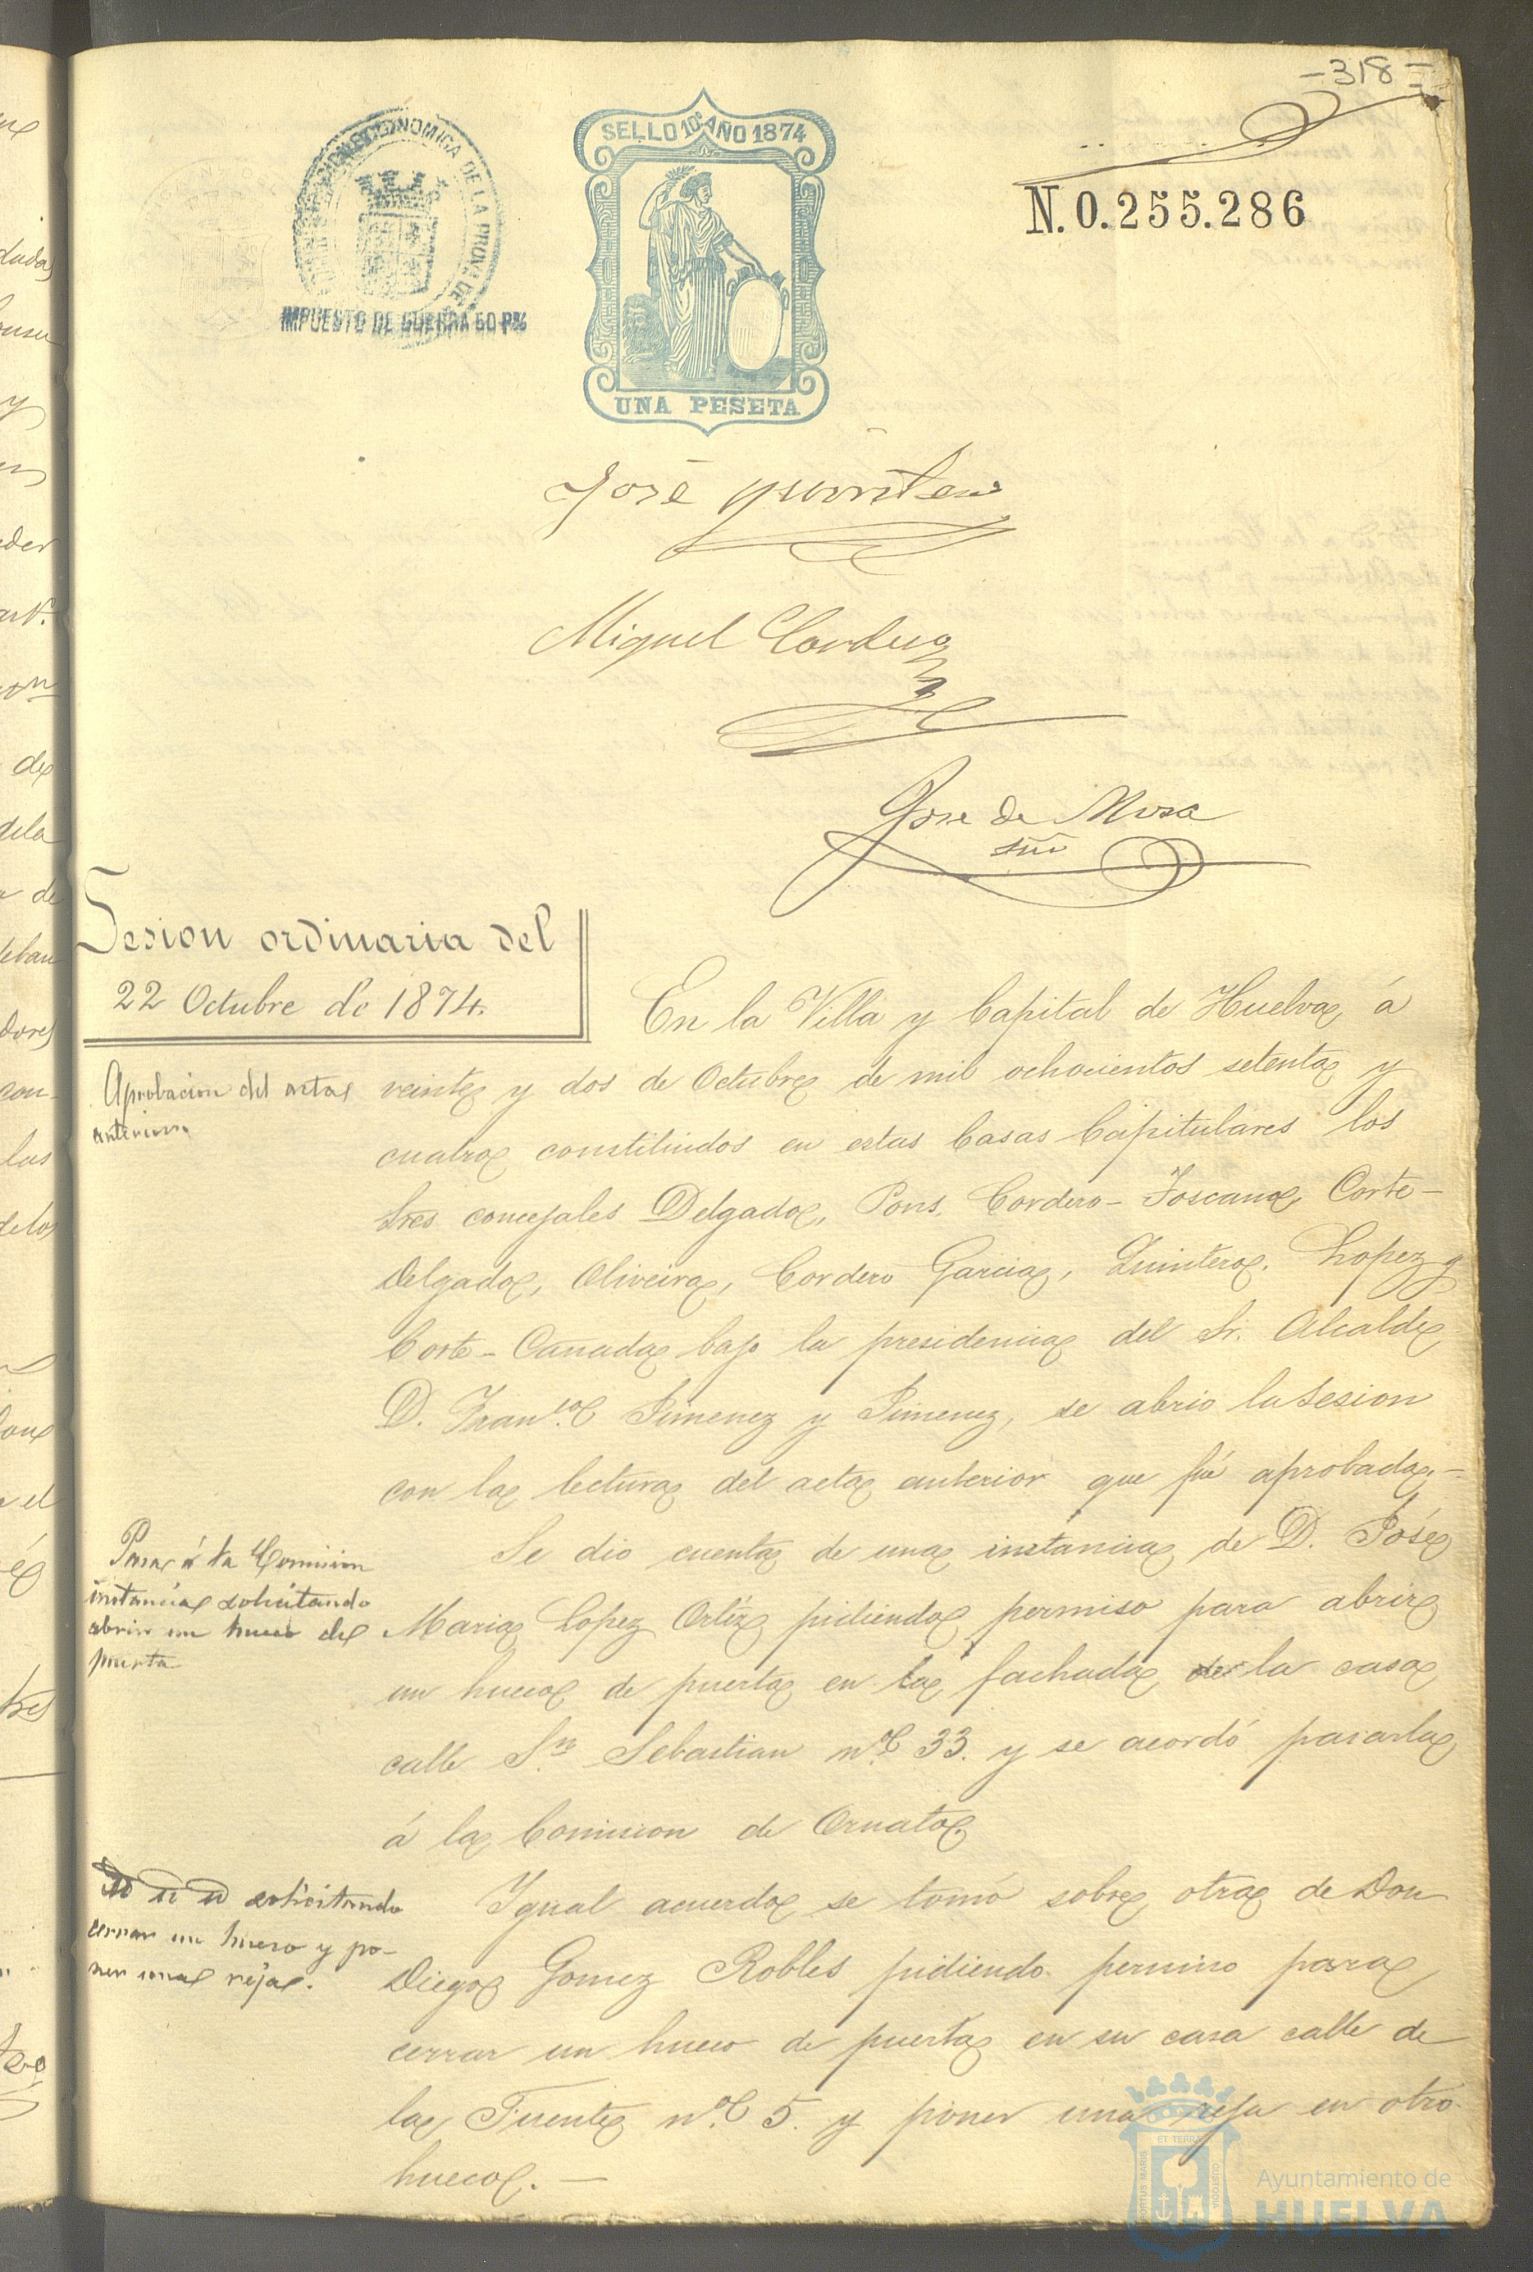 -318-
SELLO 10º AÑO 1874
ECONOMICA DE LA PROVª DE
IMPUESTO DE GUERRA 50 
N. 0.255.286
UNA PESETA
José Quintero
Miguel Cordero
Jose de Mora
Srio
Sesion ordinaria del
22 Octubre de 1874.
En la Villa y Capital de Huelva, á
Aprobacion del acta
anterior.
veinte y dos de Octubre de mil ochocientos setenta y
cuatro constituidos en estas Casas Capitulares los
Sres concejales Delgado, Pons, Cordero-Toscano, Corte-
Delgado, Oliveira, Cordero Garcia, Quintero, Lopez y
Corte-Cañada bajo la presidencia del Sr. Alcalde
D. Franco. Jimenez y Jimenez, se abrio la Sesion
con la lectura del acta anterior que fué aprobada.-
Pasar á la Comision
instancia solicitando
abrir un hueco de
puerta
Se dio cuenta de una instancia de D. José
Maria Lopez Ortiz pidiendo permiso para abrir
un hueco de puerta en la fachada de la casa
calle Sn. Sebastian nº 33. y se acordó pasarla
á la Comision de Ornato.
Id id id solicitando
cerrar un hueco y po-
ner una reja.
Igual acuerdo se tomó sobre otra de Don
Diego Gomez Robles pidiendo permiso para
cerrar un hueco de puerta en su casa calle de
la Fuente nº 5. y poner una reja en otro
hueco.-
PORTUS MARIS
ET TERRÆ
CUSTODIA
Ayuntamiento de
HUELVA